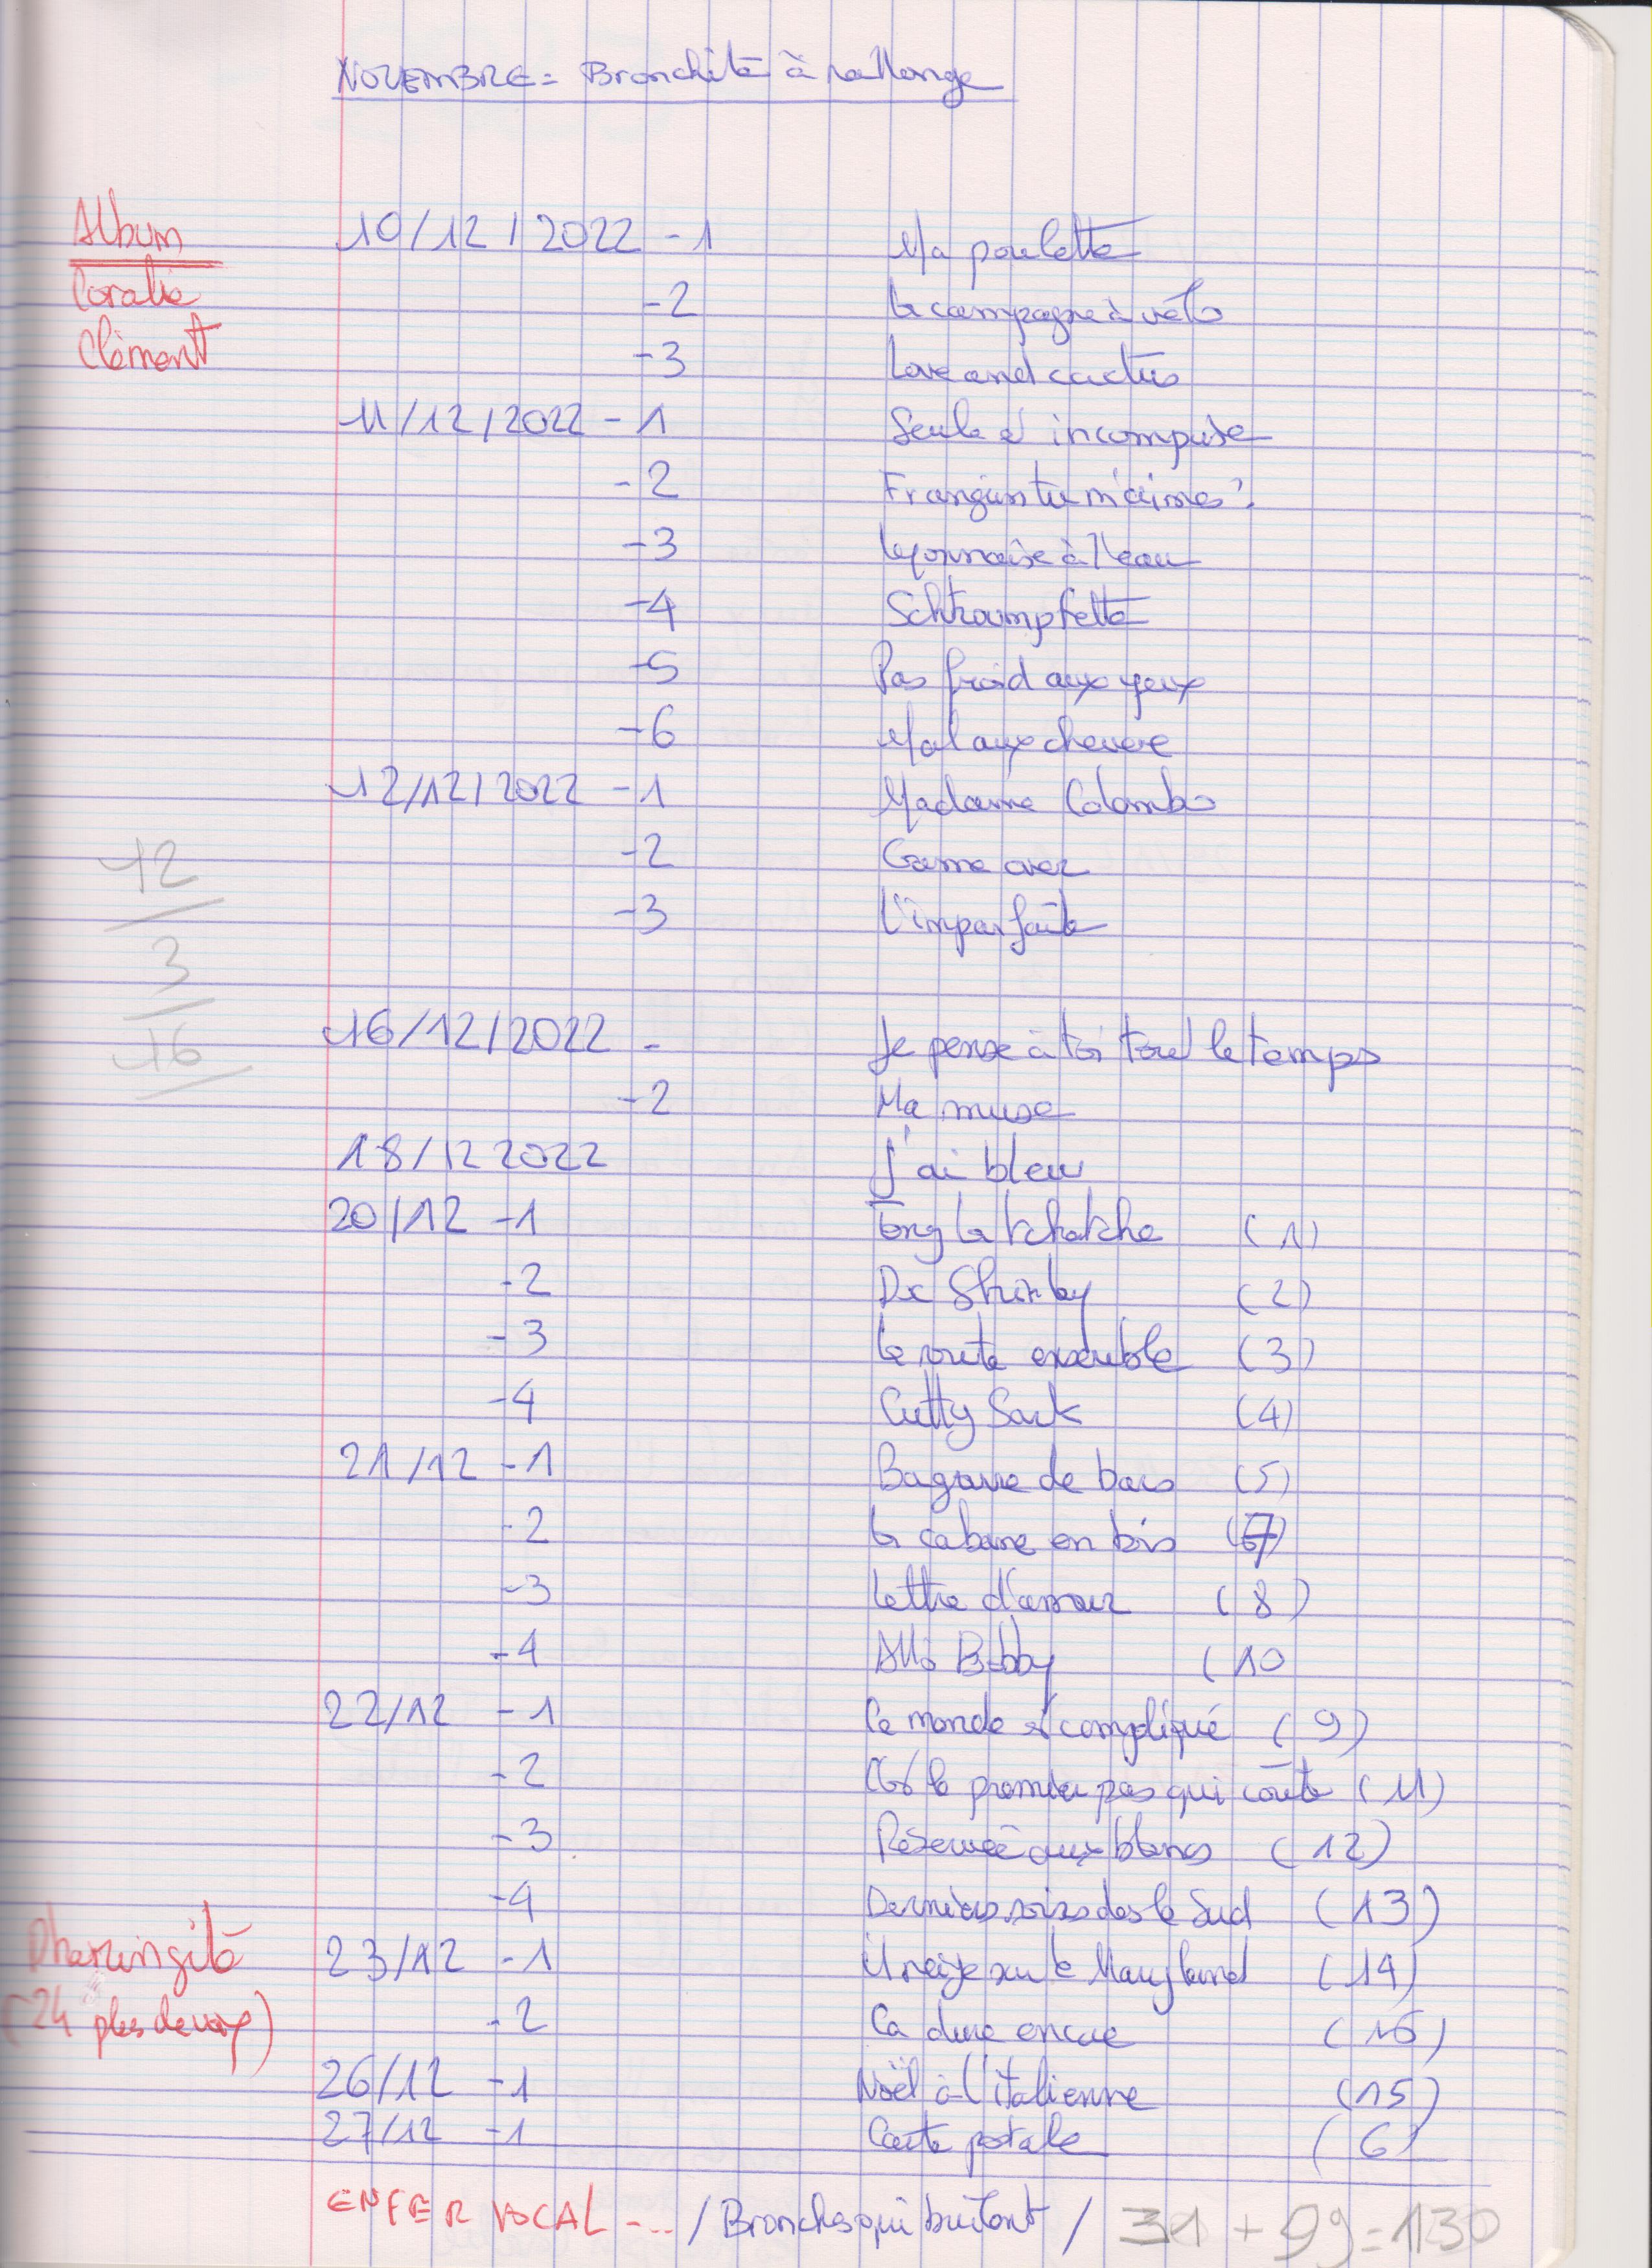 NOVEMBRE = Bronchite à rallonge
Album
Coralie
Clément
10/12/2022 -1 Ma poulette
-2 la campagne à vélo
-3 Love and cactus
11/12/2022 -1 Seule et incomprise
-2 Frangin tu m'aimes ?
-3 Lyonnaise à l'eau
-4 Schtroumpfette
-5 Pas froid aux yeux
-6 Mal aux cheveux
12/12/2022 -1 Madame Colombo
-2 Game over
-3 L'imparfaite
12
3
16
16/12/2022 - Je pense à toi tout le temps
-2 Ma muse
18/12 2022 J'ai bleu
20/12 -1 Tony la tchatche (1)
-2 Dr Shirley (2)
-3 La route ensemble (3)
-4 Cutty Sark (4)
21/12 -1 Bagarre de bars (5)
-2 la cabane en bois (7)
-3 Lettre d'amour (8)
-4 Allô Bobby (10
22/12 -1 Ce monde est compliqué (9)
-2 C'est le premier pas qui coûte (11)
-3 Réservé aux blancs (12)
-4 Derniers soirs ds le Sud (13)
23/12 -1 Il neige sur le Maryland (14)
-2 Ca dure encore (16)
Pharingite
(24 plus de voix)
26/12 -1 Noël à l'italienne (15)
27/12 -1 Carte postale (6)
ENFER VOCAL --- / Bronches qui brûlent / 31 + 99 = 130